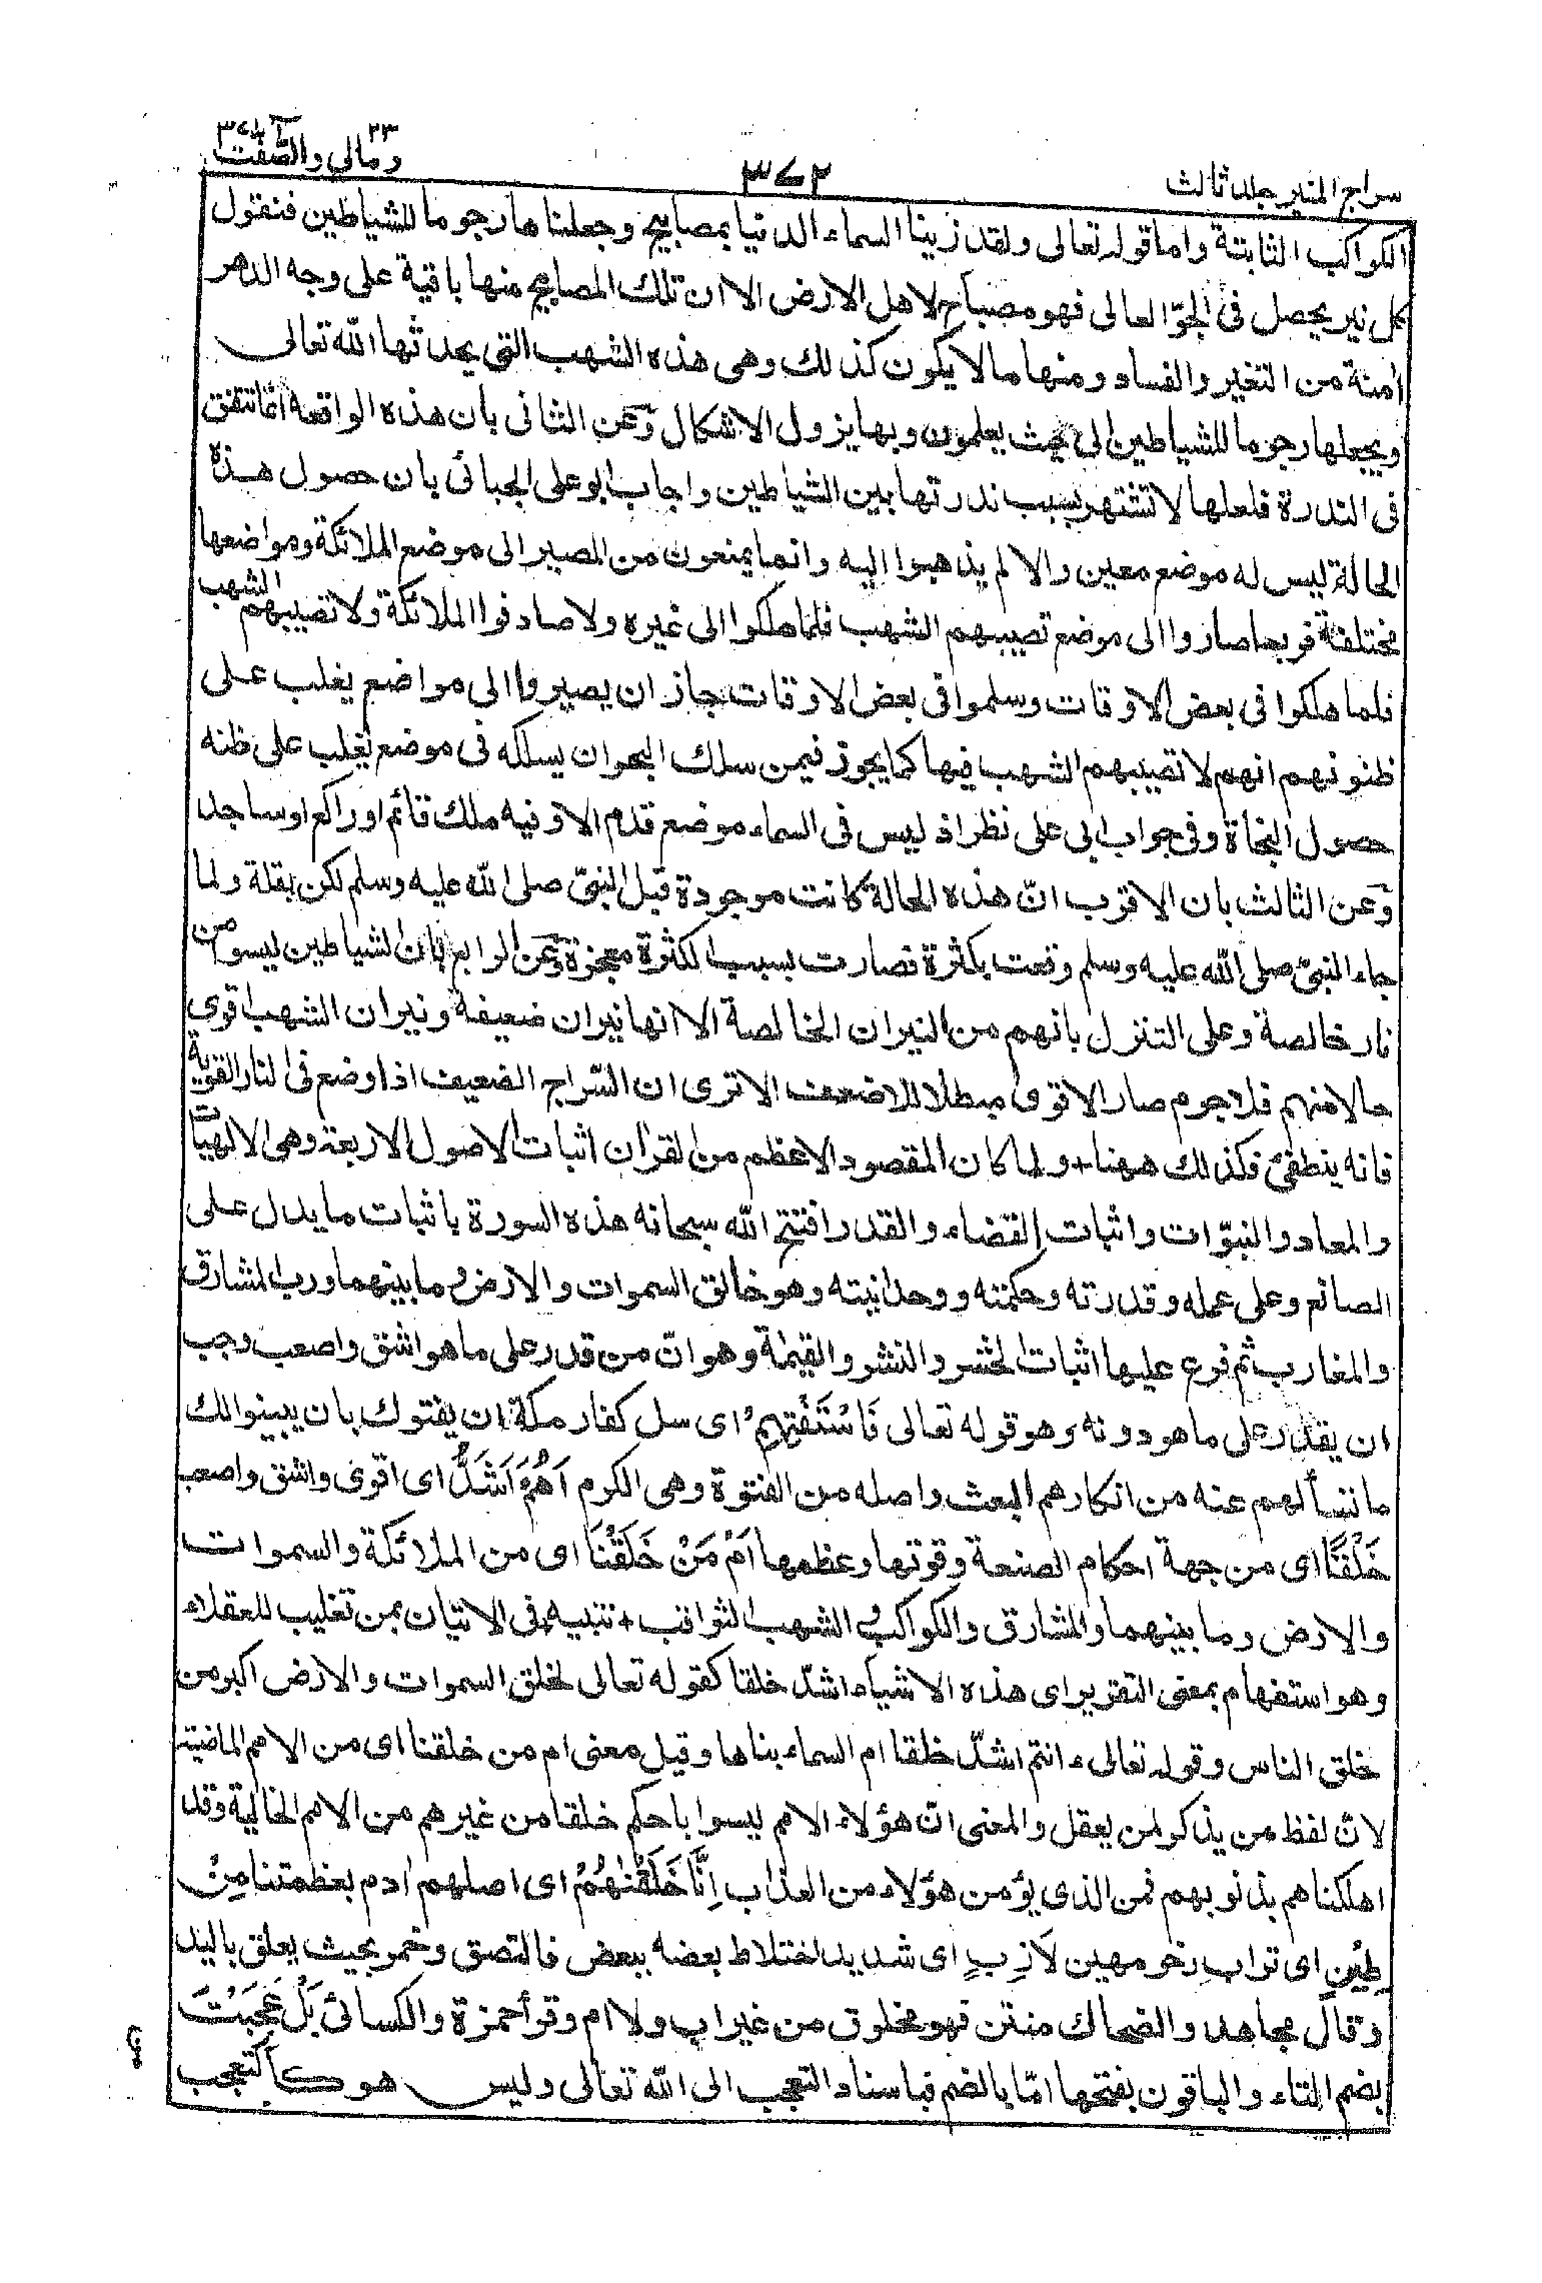 سراج المنير جلد ثالث
٣٧٢
٢٣ ومالي والصّفّت ٣٧
الكواكب الثابتة واما قوله تعالى ولقد زينا السماء الدنيا بمصابيح وجعلناها رجوما للشياطين فنقول
كل نير يحصل فى الجوّ العالى فهو مصباح لاهل الارض الا ان تلك المصابيح منها باقية على وجه الدهر
امنة من التغير والفساد ومنها ما لا يكون كذلك وهى هذه الشهب التى يحدثها الله تعالى
ويجعلها رجوما للشياطين الى حيث يعلمون وبها يزول الاشكال وعن الثانى بان هذه الواقعة انما تتفق
فى الندرة فلعلها لا تشتهر بسبب ندرتها بين الشياطين واجاب ابو على الجبائى بان حصول هذه
الحالة ليس له موضع معين والا لم يذهبوا اليه وانما يمنعون من المصير الى موضع الملائكة ومواضعها
مختلفة فربما صاروا الى موضع تصيبهم الشهب فلما هلكوا الى غيره ولا صادفوا الملائكة ولا تصيبهم الشهب
فلما هلكوا فى بعض الاوقات وسلموا فى بعض الاوقات جاز ان يصيروا الى مواضع يغلب على
ظنونهم انهم لا تصيبهم الشهب فيها كما يجوز فيمن سلك البحر ان يسلكه فى موضع يغلب على ظنه
حصول النجاة وفى جواب ابى على نظر اذ ليس فى السماء موضع قدم الا وفيه ملك قائم او راكع او ساجد
وعن الثالث بان الاقرب انّ هذه الحالة كانت موجودة قبل النبىّ صلى الله عليه وسلم لكن بقلة ولما
جاء النبىّ صلى الله عليه وسلم وقعت بكثرة فصارت بسبب الكثرة معجزة وعن الرابع بان الشياطين ليسوا من
نار خالصة وعلى التنزل بانهم من النيران الخالصة الا انها نيران ضعيفة ونيران الشهب اقوى
حالا منهم فلا جرم صار الاقوى مبطلا للاضعف الا ترى ان السّراج الضعيف اذا وضع فى النار القوية
فانه ينطفئ فكذلك ههنا + ولما كان المقصود الاعظم من القران اثبات الاصول الاربعة وهى الالهيات
والمعاد والنبوّات واثبات القضاء والقدر افتتح الله سبحانه هذه السورة باثبات ما يدل على
الصانع وعلى عمله وقدرته وحكمته ووحدانيته وهو خالق السموات والارض وما بينهما ورب المشارق
والمغارب ثم فرع عليها اثبات الحشر والنشر والقيمة وهو انّ من قدر على ما هو اشق واصعب وجب
ان يقدر على ما هو دونه وهو قوله تعالى فَاسْتَفْتِهِمْ اى سل كفار مكة ان يفتوك بان يبينوا لك
ما تسألهم عنه من انكارهم البعث واصله من الفتوة وهى الكرم اَهُمْ اَشَدُّ اى اقوى واشق واصعب
خَلْقًا اى من جهة احكام الصنعة وقوتها وعظمها اَمْ مَنْ خَلَقْنَا اى من الملائكة والسموات
والارض وما بينهما والمشارق والكواكب والشهب الثواقب + تنبيه + فى الاتيان بمن تغليب للعقلاء
وهو استفهام بمعنى التقرير اى هذه الاشياء اشدّ خلقا كقوله تعالى لخلق السموات والارض اكبر من
خلق الناس وقوله تعالى ء انتم اشدّ خلقا ام السماء بناها وقيل معنى ام من خلقنا اى من الامم الماضية
لانّ لفظ من يذكر لمن يعقل والمعنى انّ هؤلاء الامم ليسوا باحكم خلقا من غيرهم من الامم الخالية وقد
اهلكناهم بذنوبهم فمن الذى يؤمن هؤلاء من العذاب اِنَّا خَلَقْنٰهُمْ اى اصلهم ادم بعظمتنا مِنْ
طِيْنٍ اى تراب رخو مهين لَازِبٍ اى شديد اختلاط بعضه ببعض فالتصق وخمر بحيث يعلق باليد
وقال مجاهد والضحاك منتن فهو مخلوق من غير اب ولا ام وقرأ حمزة والكسائى بَلْ عَجِبْتَ
بضم التاء والباقون بفتحها امّا بالضم فباسناد التعجب الى الله تعالى وليس هو كالتعجب